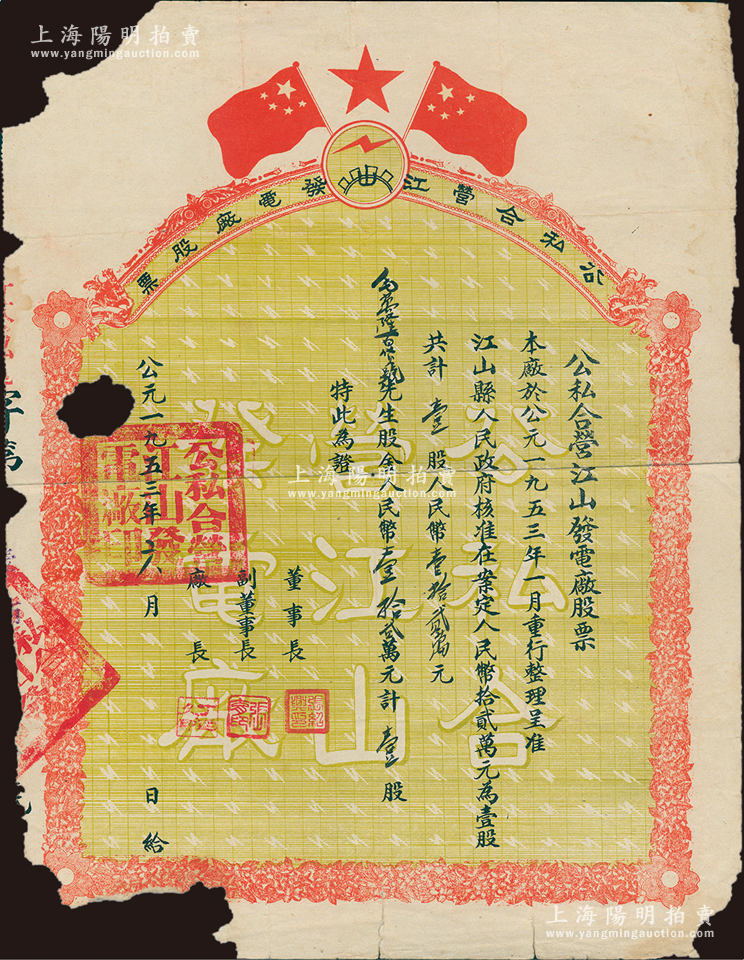 上海陽明拍賣
www.yangmingauction.com
公私合營江山發電廠股票
公私合營江山發電廠股票
本廠於公元一九五三年一月重行整理呈准
江山縣人民政府核准在案定人民幣拾貳萬元為壹股
共計壹股人民幣壹拾貳萬元
先生股金人民幣壹拾貳萬元計壹股
特此為證
董事長
副董事長
廠長
公元一九五三年六月 日給
公私合營江山發電廠印
公私合營江山發電廠
字第
號
上海陽明拍賣
www.yangmingauction.com
上海陽明拍賣
www.yangmingauction.com